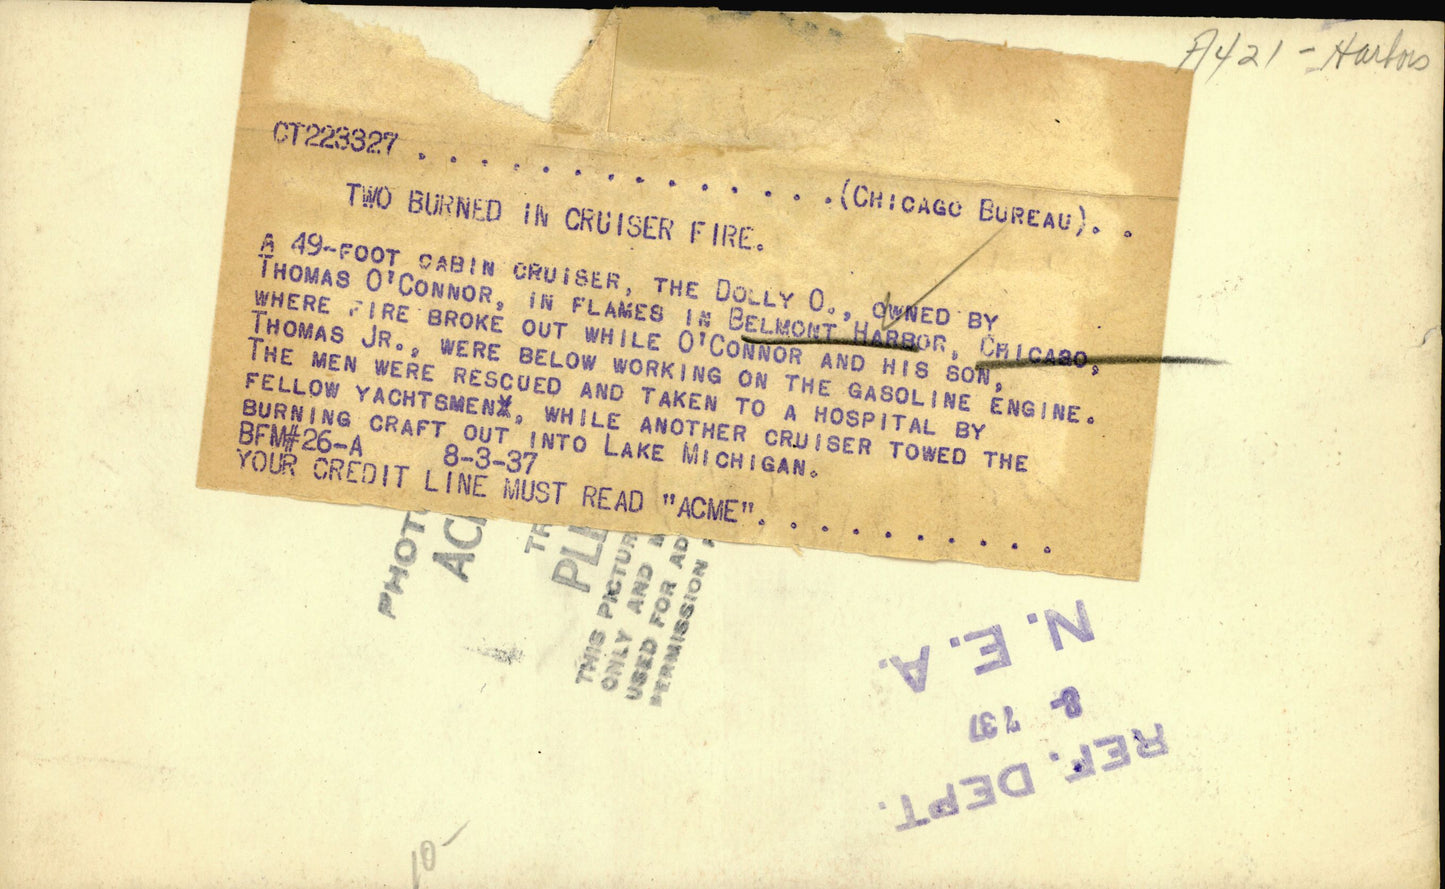 A421 - Harbors
CT223327 . . . . . . . . . . . . . .(CHICAGO BUREAU). .
TWO BURNED IN CRUISER FIRE.
A 49-FOOT CABIN CRUISER, THE DOLLY O., OWNED BY
THOMAS O'CONNOR, IN FLAMES IN BELMONT HARBOR, CHICAGO,
WHERE FIRE BROKE OUT WHILE O'CONNOR AND HIS SON,
THOMAS JR., WERE BELOW WORKING ON THE GASOLINE ENGINE.
THE MEN WERE RESCUED AND TAKEN TO A HOSPITAL BY
FELLOW YACHTSMEN, WHILE ANOTHER CRUISER TOWED THE
BURNING CRAFT OUT INTO LAKE MICHIGAN.
BFM#26-A 8-3-37
YOUR CREDIT LINE MUST READ "ACME". . . . . . . . . .
PHOTO
AC
TR
PLE
THIS PICTUR
ONLY AND
USED FOR AD
PERMISSION
N.E.A.
8- 7 37
REF. DEPT.
10-